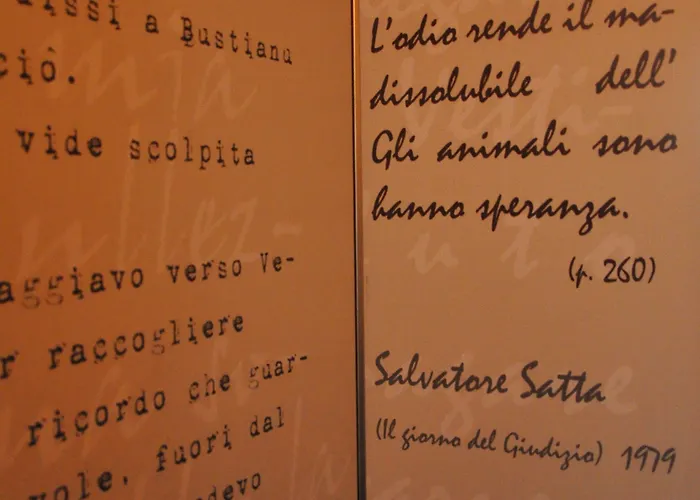 issi a Bustianu
ciò.
vide scolpita
aggiavo verso Ve-
r raccogliere
ricordo che guar-
vole, fuori dal
devo
L'odio rende il ma-
dissolubile dell'
Gli animali sono
hanno speranza.
(p. 260)
Salvatore Satta
(Il giorno del Giudizio) 1979